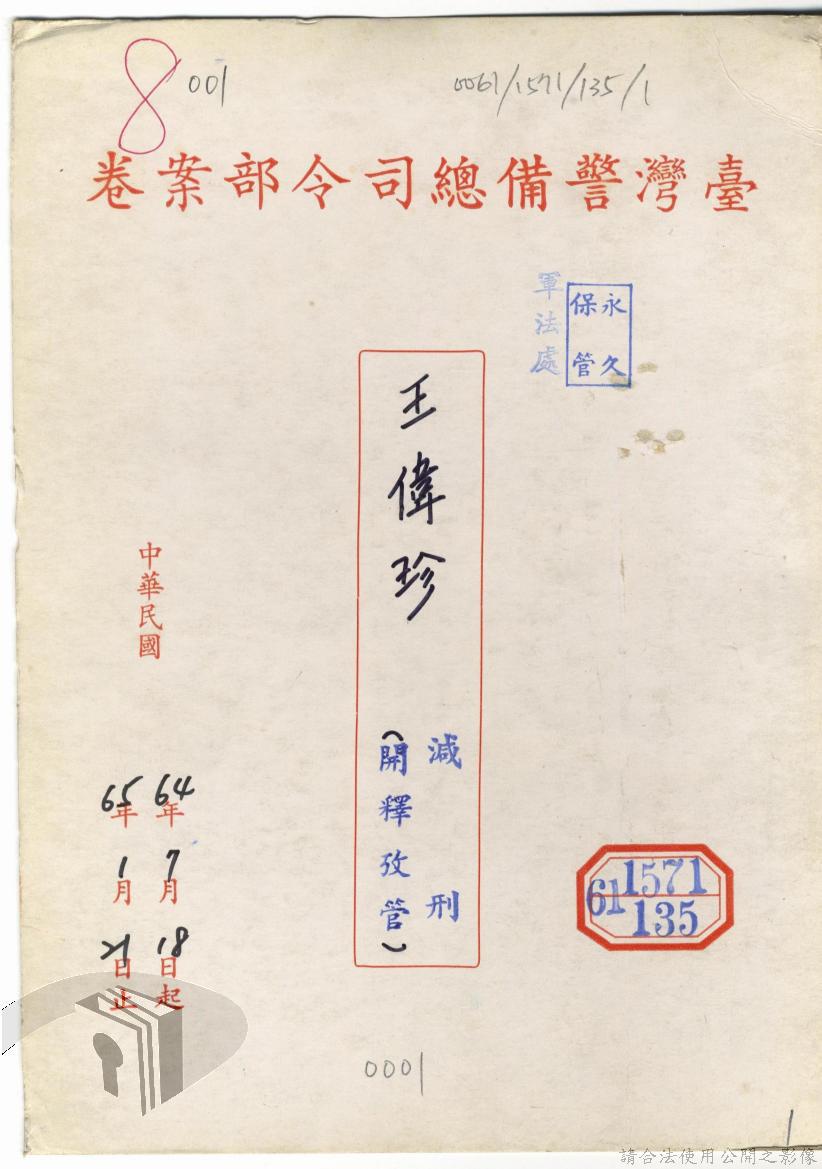 8
001
0061/1571/135/1
臺灣警備總司令部案卷
軍法處
永久
保管
王偉珍
減刑
(開釋攷管)
中華民國
64年7月18日起
65年1月21日止
61 1571
135
0001
1
請合法使用公開之影像